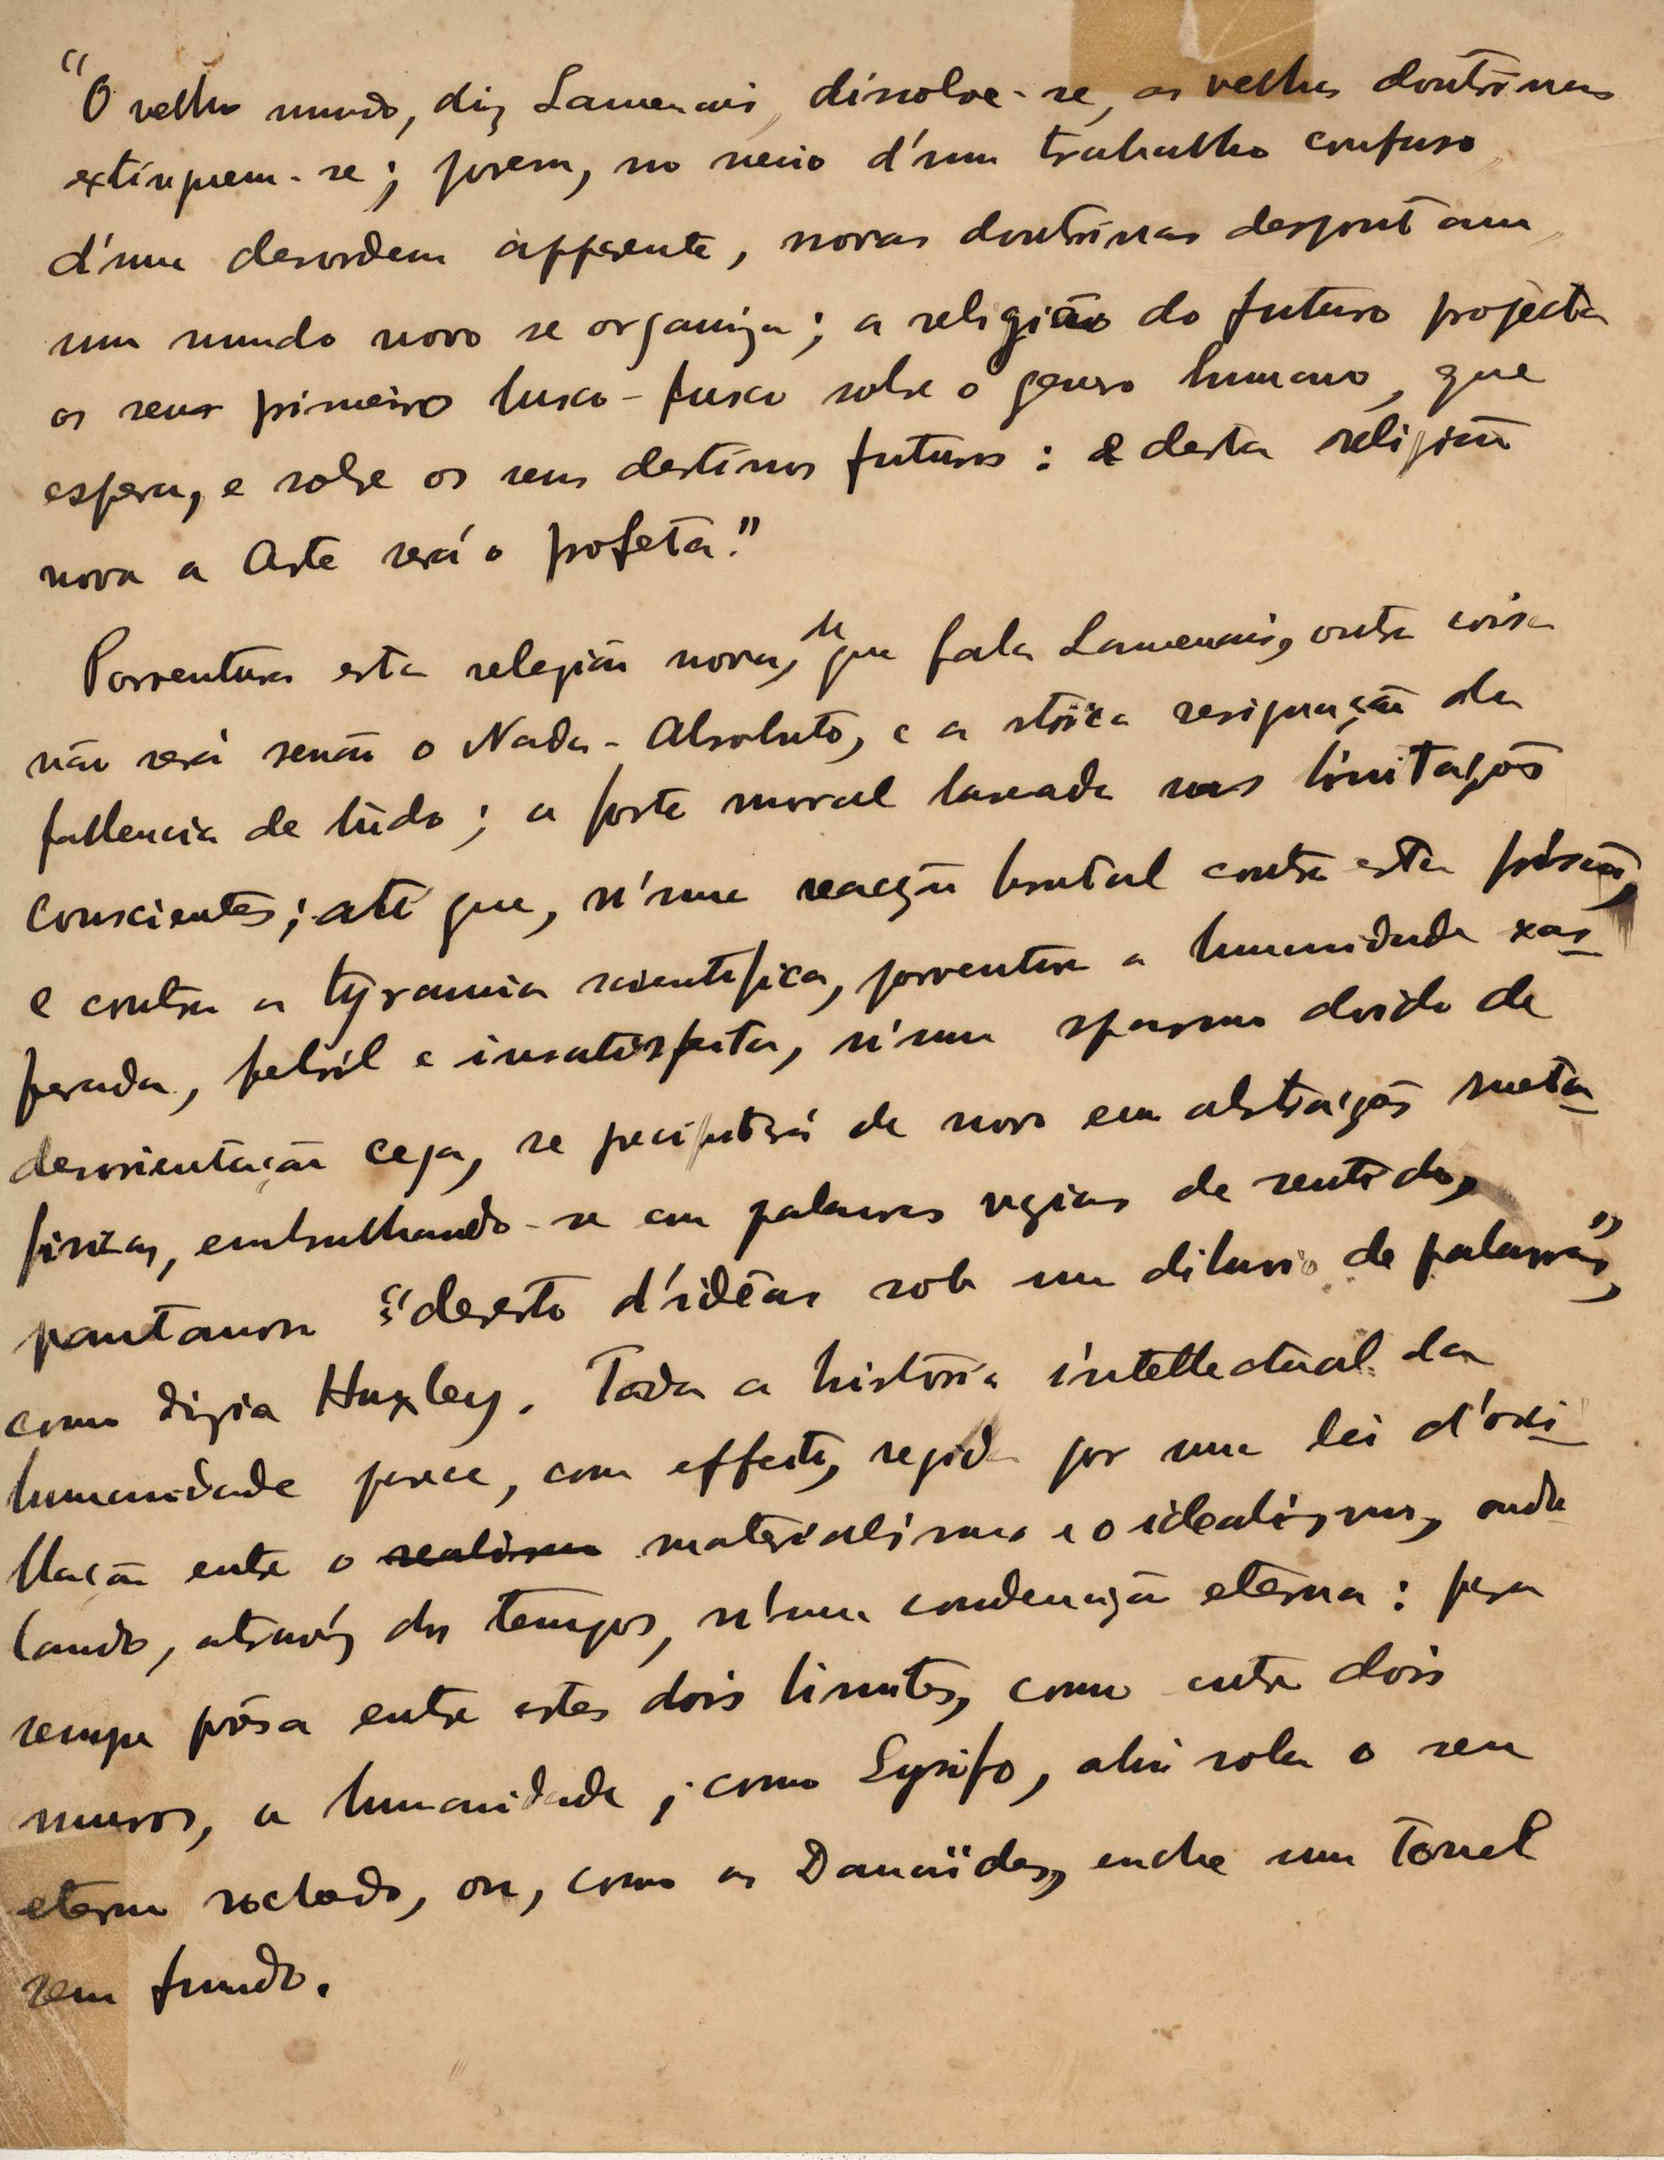 "O velho mundo, diz Lamenais, dissolve-se, as velhas doutrinas
extinguem-se; porem, no meio d'um trabalho confuso,
d'uma desordem apparente, novas doutrinas despontam,
um mundo novo se organiza; a religião do futuro projecta
os seus primeiro lusco-fusco sobre o genero humano, que
espera, e sobre os seus destinos futuros: e desta religião
nova a Arte será o profeta."
Porventura esta relegião nova, de que fala Lamenais, outra coisa
não será senão o Nada-Absoluto, e a stoica resignação da
fallencia de tudo; a forte moral baseada nas limitações
conscientes; até que, n'uma reacção brutal contra esta prisão,
e contra a tyrannia scientifica, porventura a humanidade xas-
perada, febril e insatisfeita, n'um spasmo doido de
desorientação cega, se precipitará de novo em abstracções meta-
fisicas, embrulhando-se em palavras vazias de sentido,
pantanosa "deserto d'idêas sob um diluvio de palavras",
como dizia Huxley. Toda a historia intellectual da
humanidade parece, com effeito, regida por uma lei d'osci-
llação entre o realismo materialismo e o idealismo, ondu
lando, através dos tempos, n'uma condenação eterna: para
sempre prêsa entre estes dois limites, como entre dois
muros, a humanidade, como Sysifo, ahi rola o seu
eterno rochedo, ou, como as Danaïdes, enche um tonel
sem fundo.